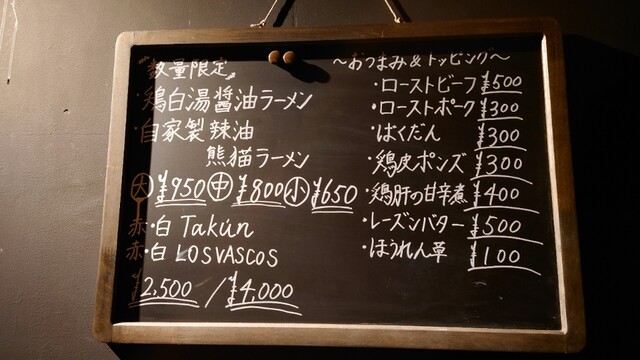 〃数量限定〃
・鶏白湯醤油ラーメン
・自家製辣油
熊猫ラーメン
大 ¥950 中 ¥800 小 ¥650
赤・白 Takún
赤・白 LOS VASCOS
¥2,500 / ¥4,000
〜おつまみ&トッピング〜
・ローストビーフ ¥500
・ローストポーク ¥300
・ばくだん ¥300
・鶏皮ポンズ ¥300
・鶏肝の甘辛煮 ¥400
・レーズンバター ¥500
・ほうれん草 ¥100